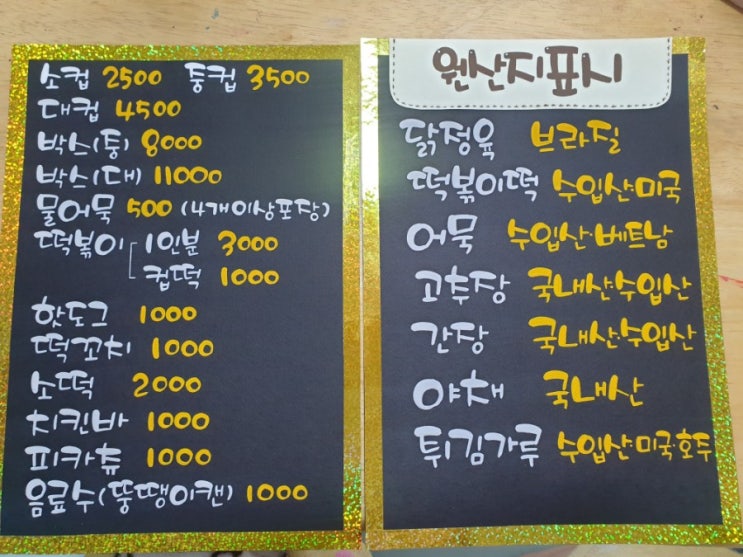 소컵 2500 중컵 3500
대컵 4500
박스(중) 8000
박스(대) 11000
물어묵 500 (4개이상포장)
떡볶이 1인분 3000
컵떡 1000
핫도그 1000
떡꼬치 1000
소떡 2000
치킨바 1000
피카츄 1000
음료수(뚱땡이캔) 1000
원산지표시
닭정육 브라질
떡볶이떡 수입산·미국
어묵 수입산·베트남
고추장 국내산·수입산
간장 국내산·수입산
야채 국내산
튀김가루 수입산·미국·호주